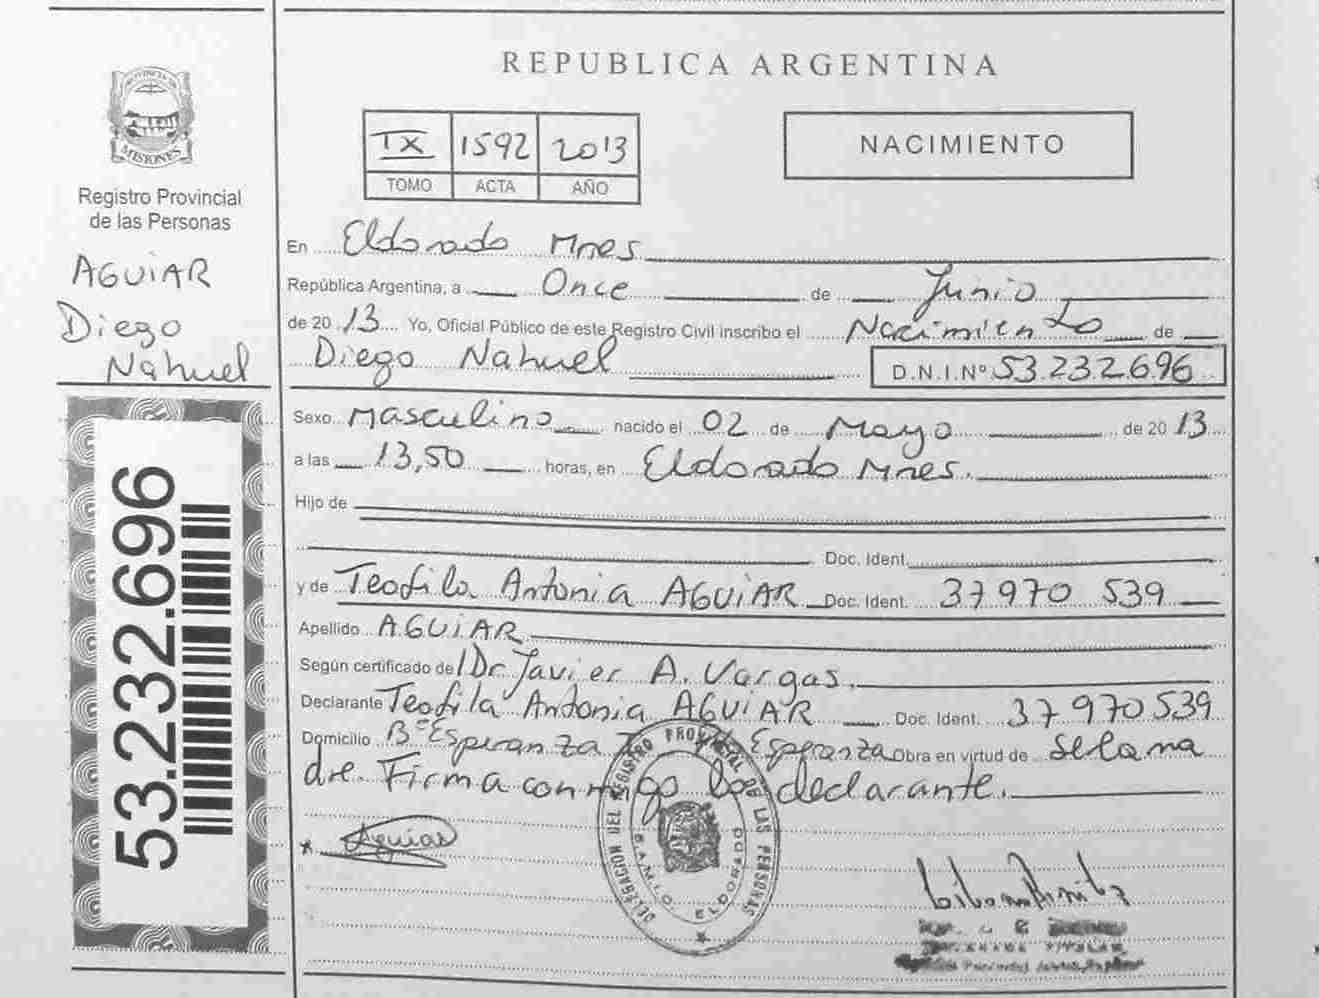 REPUBLICA ARGENTINA
PROVINCIA DE
MISIONES
Registro Provincial
de las Personas
AGUiAR
Diego
Nahuel
53.232.696
IX 1592 2013
TOMO ACTA AÑO
NACIMIENTO
En Eldorado Mnes
República Argentina, a Once de Junio
de 2013 Yo, Oficial Público de este Registro Civil inscribo el Nacimiento de
Diego Nahuel D.N.I.Nº 53.232.696
Sexo Masculino nacido el 02 de Mayo de 2013
a las 13,50 horas, en Eldorado Mnes.
Hijo de
Doc. Ident.
y de Teofila Antonia AGUiAR Doc. Ident. 37970 539
Apellido AGUiAR
Según certificado de Dr Javier A. Vargas.
Declarante Teofila Antonia AGUiAR Doc. Ident. 37970539
Domicilio Bº Esperanza Esperanza Obra en virtud de Se la ma
dre. Firma conmigo la declarante.
Aguiar
DELEGACION DEL REGISTRO PROVINCIAL DE LAS PERSONAS
ELDORADO